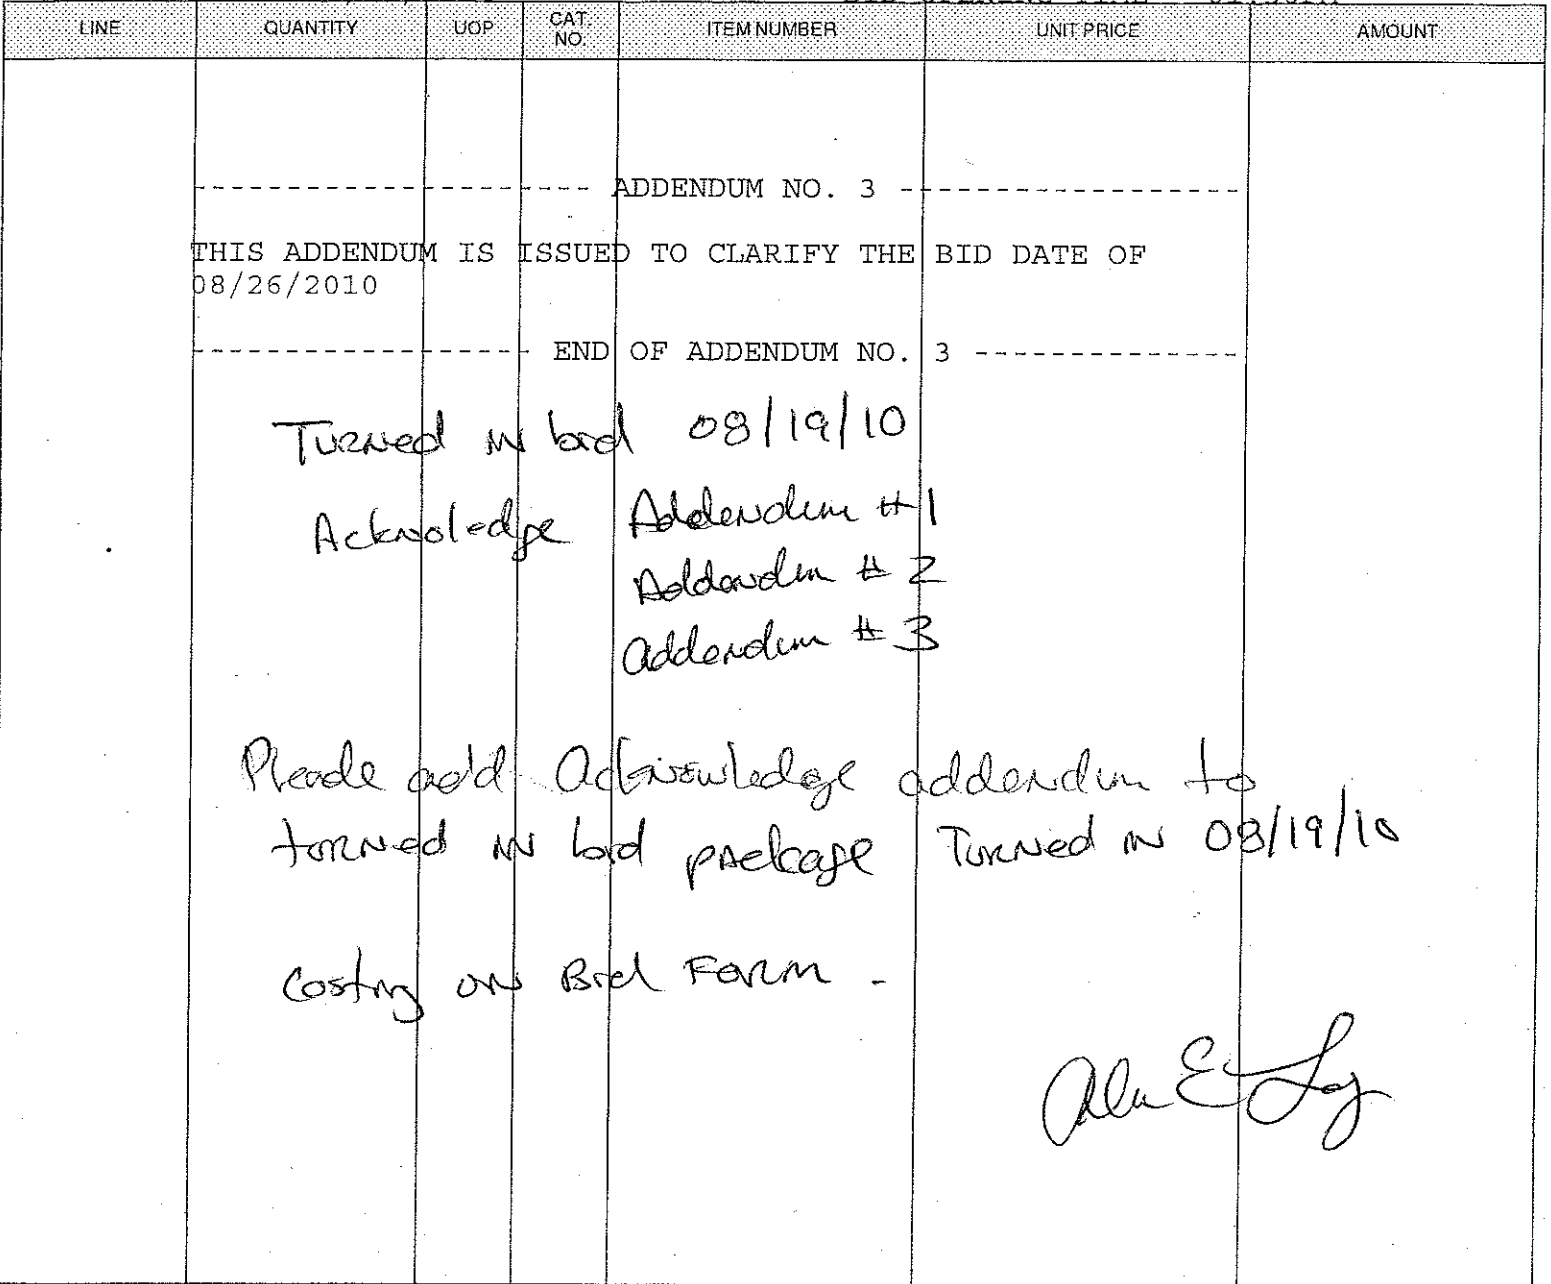 LINE QUANTITY UOP CAT. NO. ITEM NUMBER UNIT PRICE AMOUNT
-------------------- ADDENDUM NO. 3 ------------------
THIS ADDENDUM IS ISSUED TO CLARIFY THE BID DATE OF
08/26/2010
------------------ END OF ADDENDUM NO. 3 --------------
Turned in bid 08/19/10
Acknoledge Addendum #1
Addendum # 2
addendum # 3
Please add Acknowledge addendum to
turned in bid package Turned in 08/19/10
Costing on Bid Form -